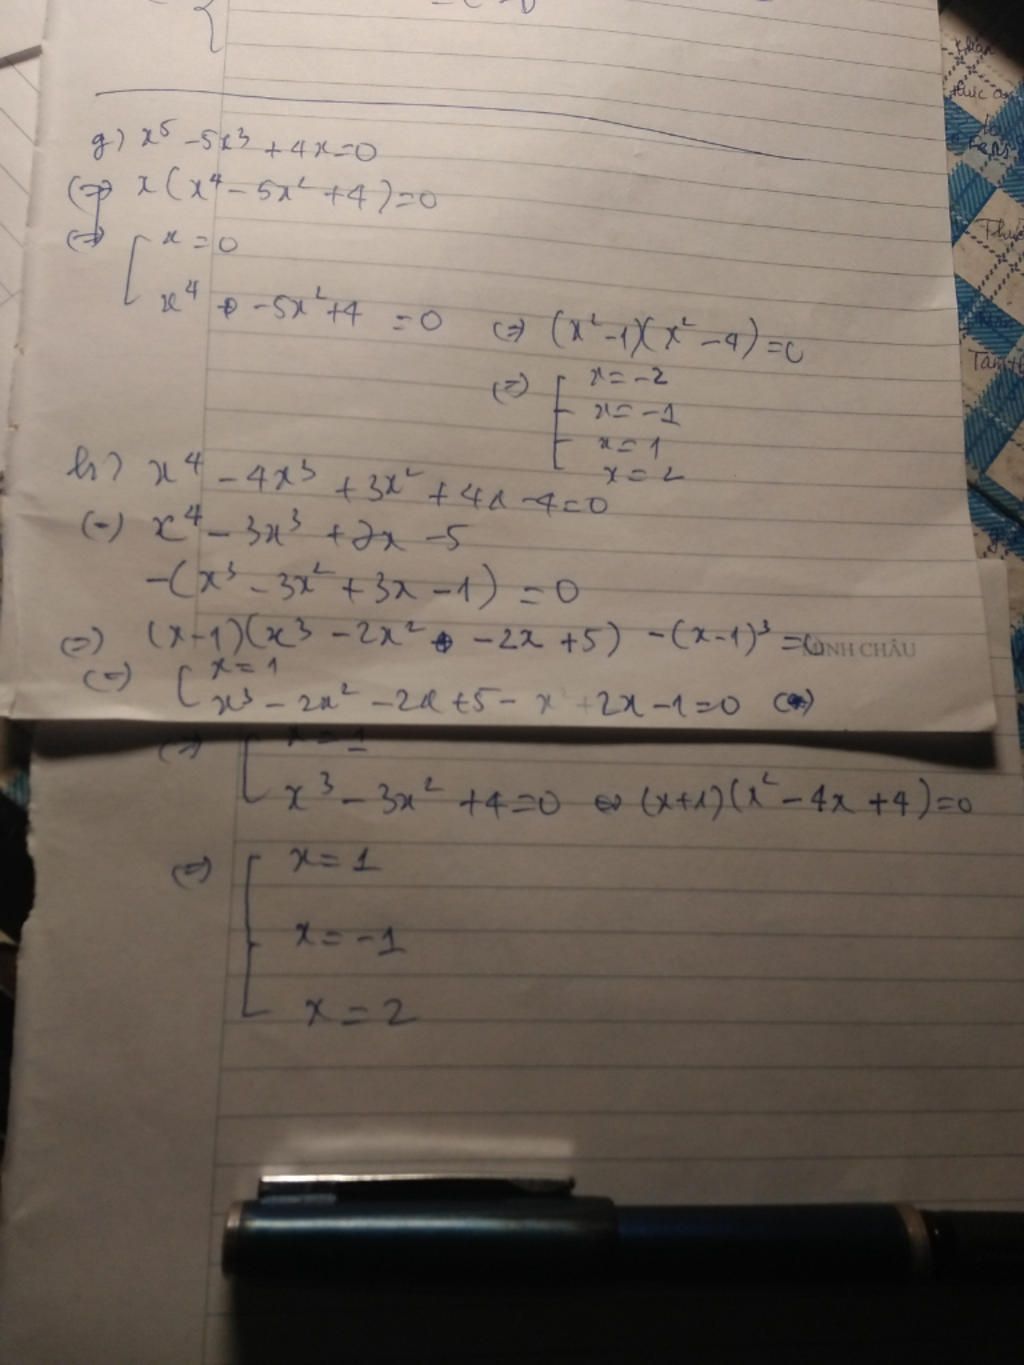 g) x⁵ - 5x³ + 4x = 0
(=) x(x⁴ - 5x² + 4) = 0
(=) [ x = 0
x⁴ - 5x² + 4 = 0 (=) (x² - 1)(x² - 4) = 0
(=) [ x = -2
x = -1
x = 1
x = 2
h) x⁴ - 4x³ + 3x² + 4x - 4 = 0
(=) x⁴ - 3x³ + 7x - 5
-(x³ - 3x² + 3x - 1) = 0
(=) (x-1)(x³ - 2x² - 2x + 5) - (x-1)³ = 0
MINH CHÂU
(=) [ x = 1
x³ - 2x² - 2x + 5 - x² + 2x - 1 = 0 (=)
(=) [ x = 1
x³ - 3x² + 4 = 0 (=) (x+1)(x² - 4x + 4) = 0
(=) [ x = 1
x = -1
x = 2